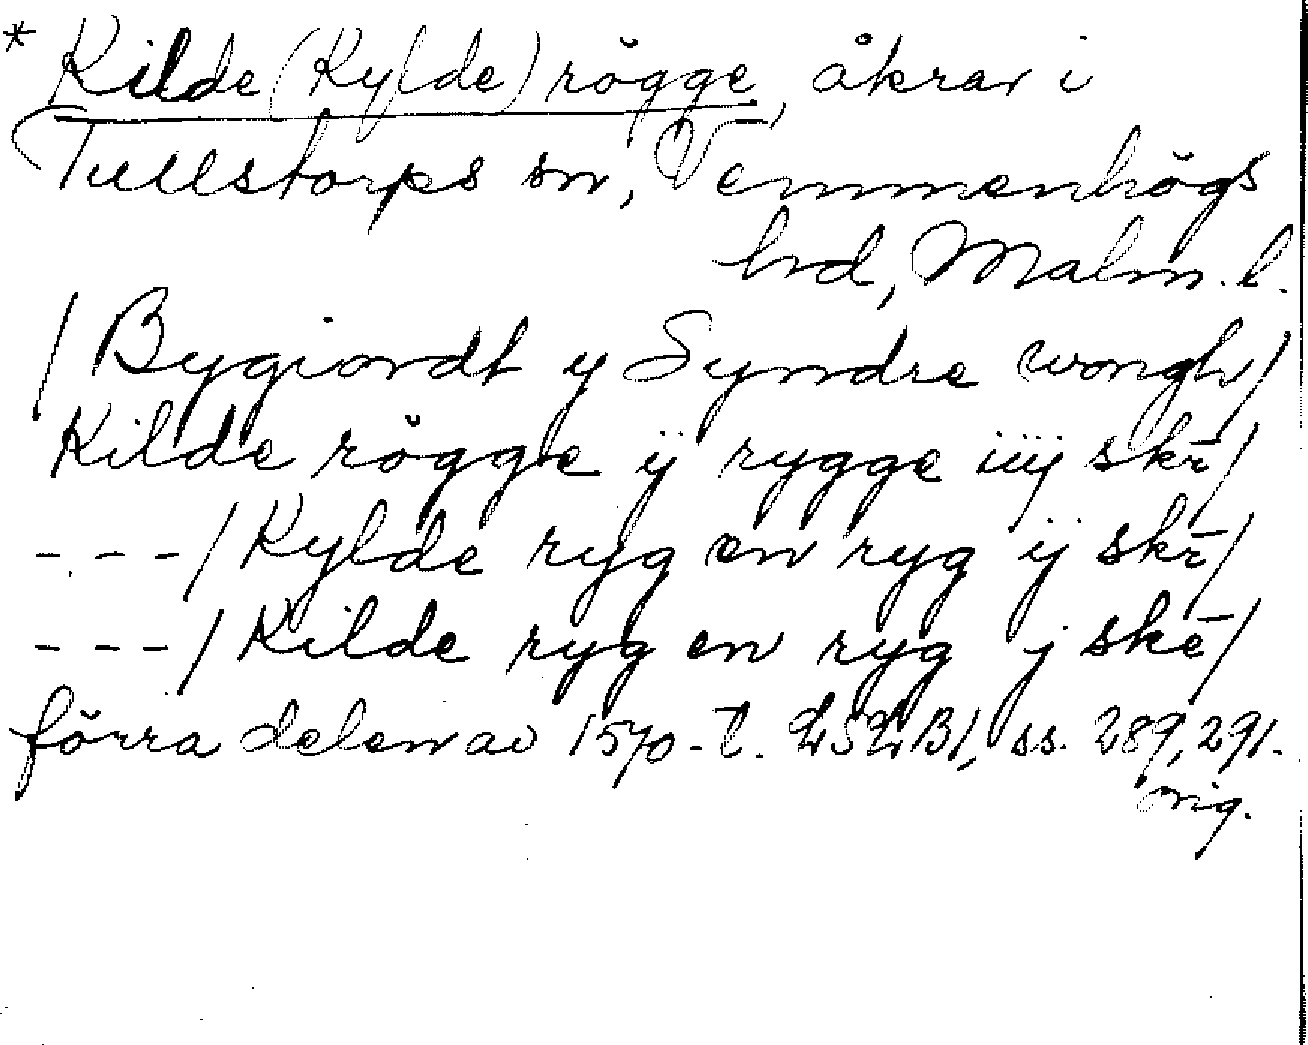 * Kilde (Kylde) rögge, åkrar i
Tullstorps sn, Vemmenhögs
hd, Malm. l.
/ Bygiordt y Syndre wongh/
Kilde rögge ij rygge iiij skr̄/
- - -/ Kylde ryg en ryg ij skr̄/
- - -/ Kilde ryg en ryg j skē/
förra delen av 1570-t. LSLB1, ss. 289, 291.
orig.